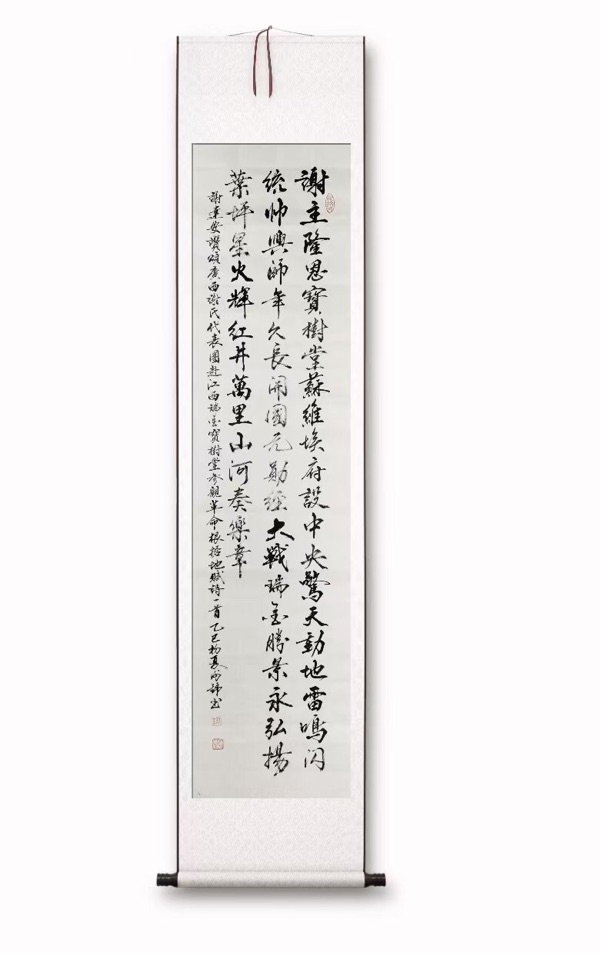 謝主隆恩寶樹堂蘇維埃府設中央驚天動地雷鳴閃
統帅興師年久長開國元勛經大戰瑞金勝景永弘揚
葉坪星火輝紅井萬里山河奏樂章
謝達安贊頌广西谢氏代表團赴江西瑞金寶樹堂參觀革命根据地賦詩一首乙巳初夏